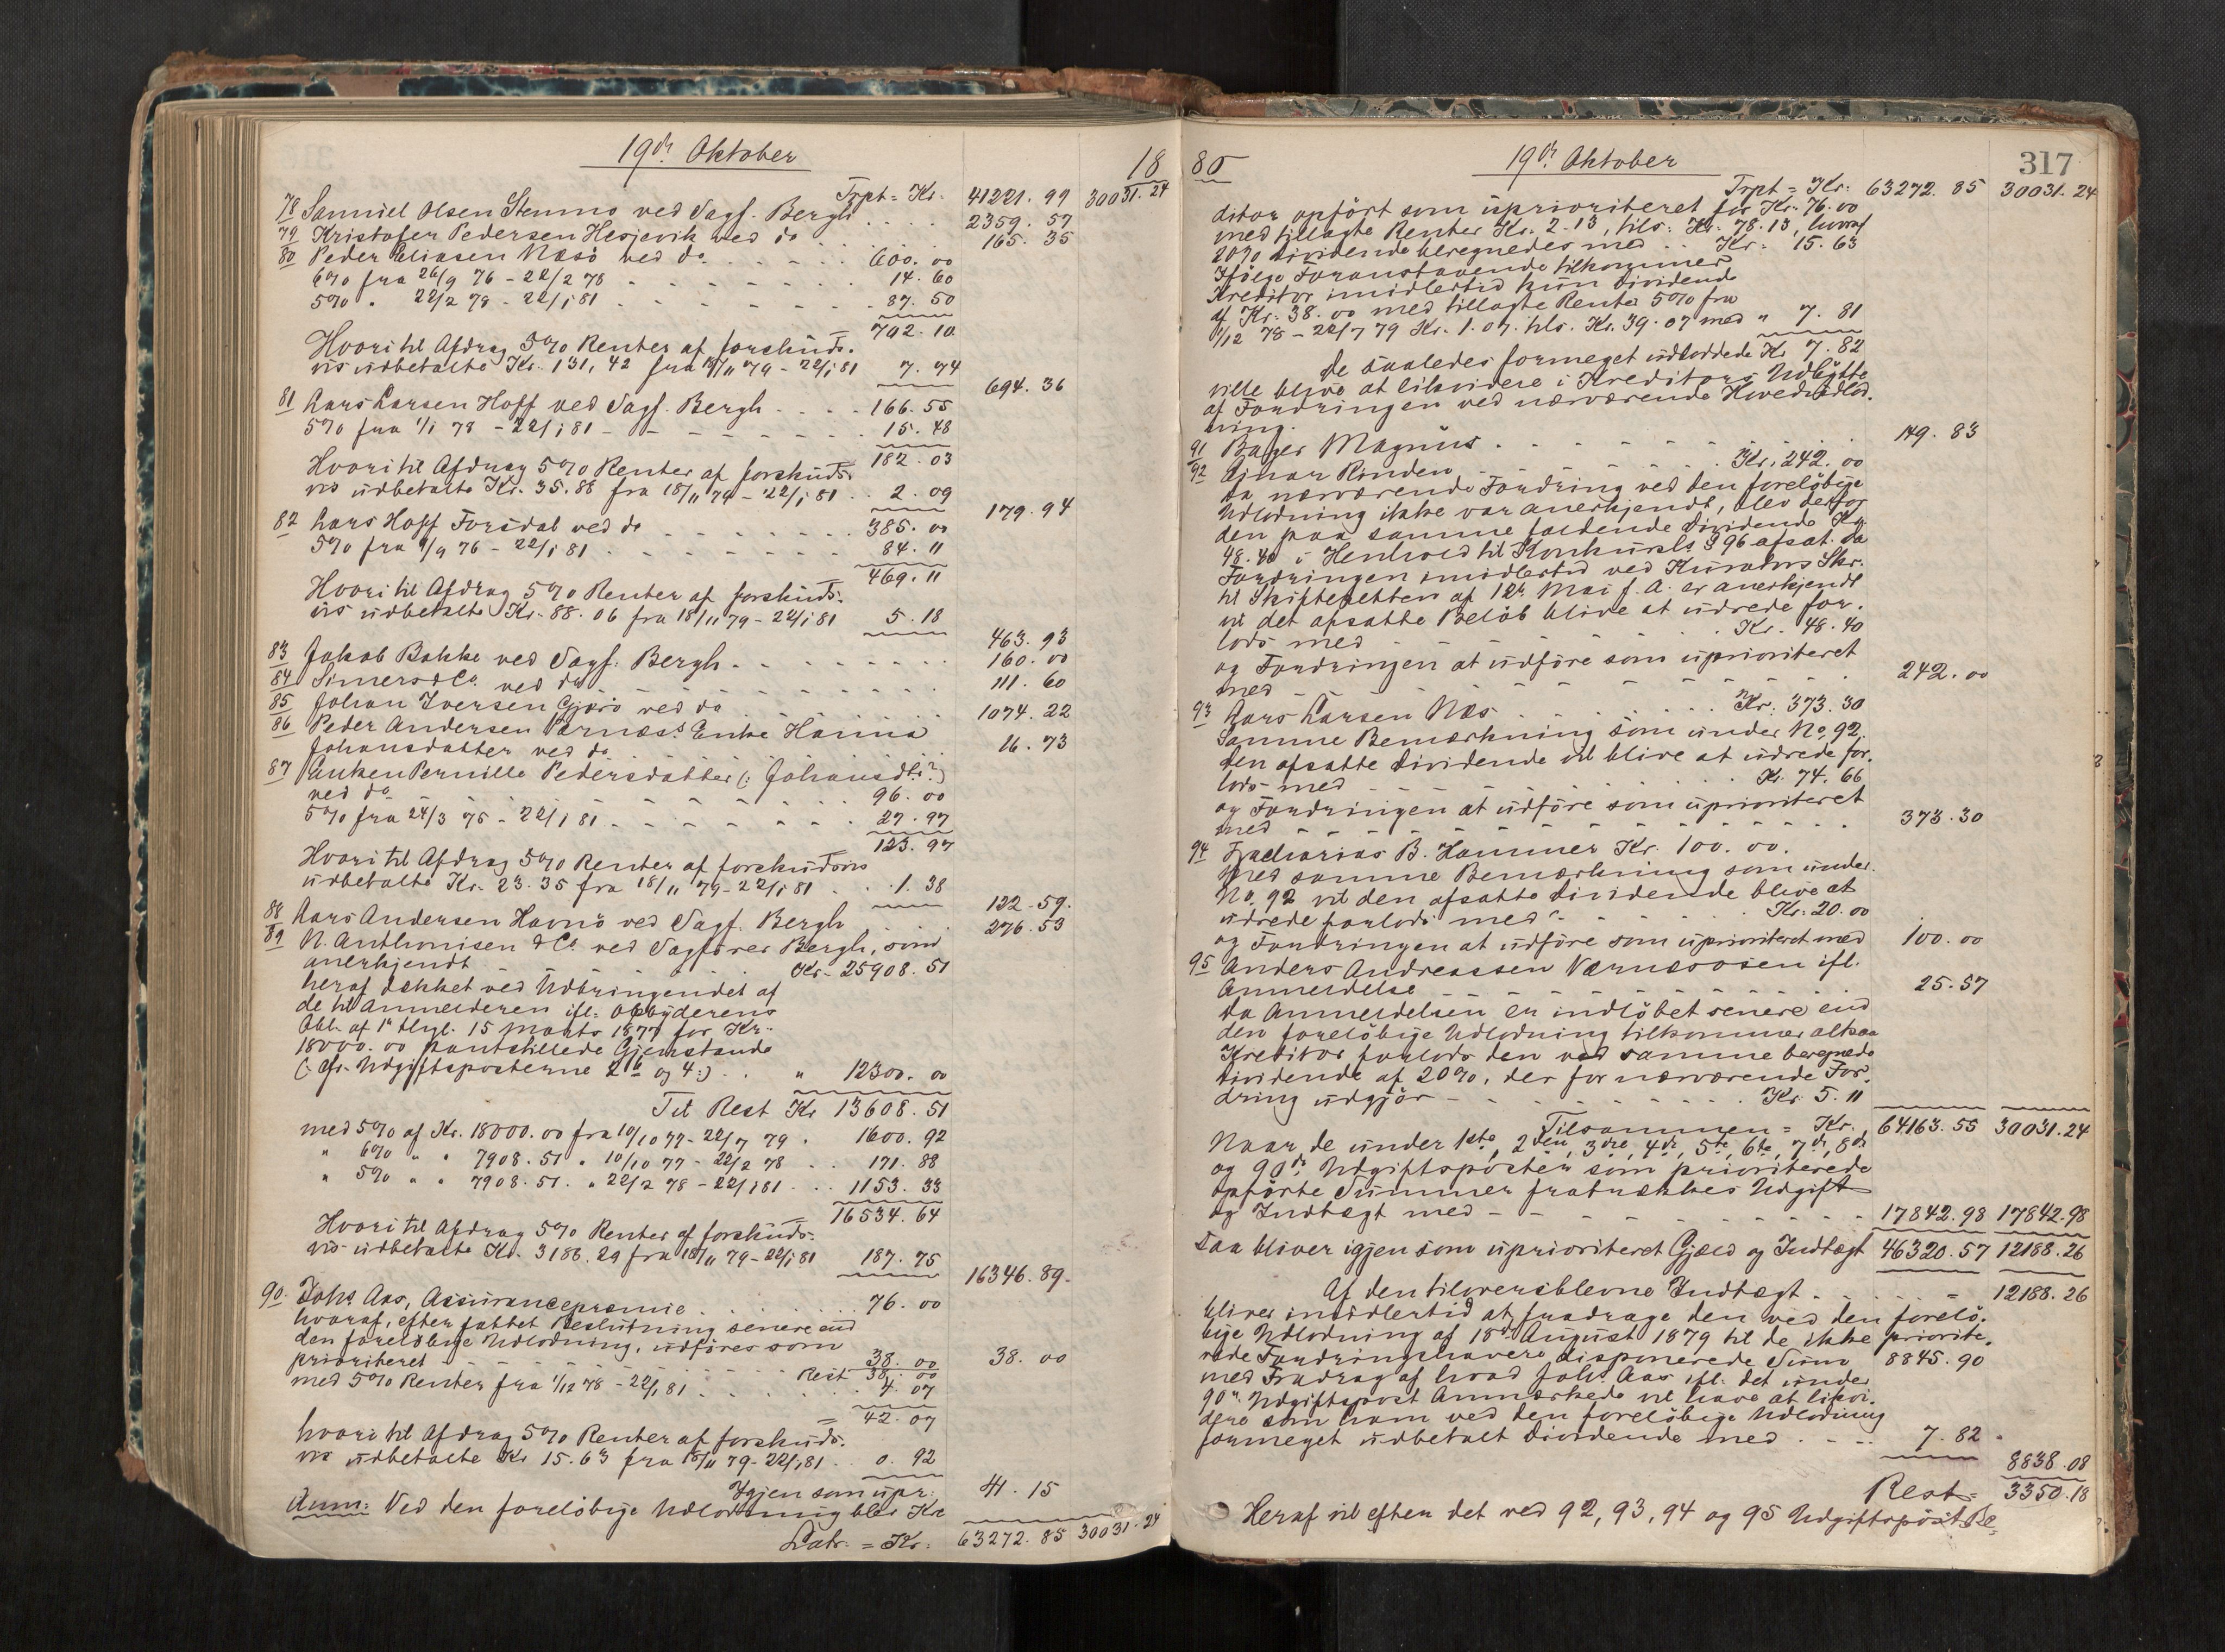 19de Oktober
18
Trpt = Kr. 41221. 99 30031. 24
78 Samuel Olsen Stemmo ved Sagf. Bergh . . . 2359. 57
79 Kristofer Pedersen Hesjevik ved do . . . 165. 35
80 Peder Eliasen Næsø ved do . . . 600. 00
6% fra 26/9 76 - 22/2 78 . . . 14. 60
5% " 22/2 78 - 22/1 81 . . . 87. 50
702. 10
Hvori til Afdrag 5% Renter af forskuds-
vis udbetalte Kr. 131, 42 fra 18/11 79 - 22/1 81 7. 74
694. 36
81 Lars Larsen Hoff ved Sagf. Bergh . . . 166. 55
5% fra 1/1 78 - 22/1 81 . . . 15. 48
182. 03
Hvori til Afdrag 5% Renter af forskuds-
vis udbetalte Kr. 35. 88 fra 18/11 79 - 22/1 81 . . 2. 09
179. 94
82 Lars Hoff Forsdal ved do . . . 385. 00
5% fra 9/9 76 - 22/1 81 . . . 84. 11
469. 11
Hvori til Afdrag 5% Renter af forskuds-
vis udbetalte Kr. 88. 06 fra 18/11 79 - 22/1 81 5. 18
463. 93
83 Jakob Bakke ved Sagf. Bergh . . . 160. 00
84 Simers & Co. ved do . . . 111. 60
85 Johan Iversen Gjærø ved do . . . 1074. 22
86 Peder Andersen Værnæs's Enke Hanna
Johansdatter ved do . . . 16. 73
87 Enken Pernille Pedersdatter (: Johansdtr?)
ved do . . . 96. 00
5% fra 24/3 75 - 22/1 81 . . . 27. 97
123. 97
Hvori til Afdrag 5% Renter af forskudsvis
udbetalte Kr. 23. 35 fra 18/11 79 - 22/1 81 . . 1. 38
122. 59.
88 Lars Andersen Havnø ved Sagf. Bergh . . . 276. 53
89 N. Anthonisen & Co ved Sagfører Bergh, som
anerkjendt . . . Kr. 25908. 51
heraf dækket ved Udbringendet af
de til Anmelderen ifl. Opbyderens
Obl. af 1ste tlgl. 15 Marts 1877 for Kr.
18000. 00 pantstillede Gjenstande
(: cfr. Udgiftsposterne 2 b og 4 :) . . " 12300. 00
Til Rest Kr 13608. 51
med 5% af Kr. 18000. 00 fra 10/10 77 - 22/7 79 . 1600. 92
" 6% " " 7908. 51 " 10/10 77 - 22/2 78 . . 171. 88
" 5% " " 7908. 51. " 22/2 78 - 22/1 81 . . . 1153. 33
= 16534. 64
Hvori til Afdrag 5% Renter af forskuds-
vis udbetalte Kr. 3186. 29 fra 18/11 79 - 22/1 81 187. 75
16346. 89.
90. Johs Aas, Assurancepræmie . . . 76. 00
hvoraf, efter fattet Beslutning senere end
den foreløbige Udlodning, udføres som
prioriteret . . . 38. 00 38. 00
Rest 38. 00
med 5% Renter fra 1/12 78 - 22/1 81 . . . 4. 07
= 42. 07
hvori til Afdrag 5% Renter af forskuds-
vis udbetalte Kr 15. 63 fra 18/11 79 - 22/1 81 . . 0. 92
Igjen som upr: 41. 15
Anm: Ved den foreløbige Udlodning blev Kre
Latr. = Kr. 63272. 85 30031. 24
80
19de Oktober
317
Trpt = Kr. 63272. 85 30031. 24
ditor opført som uprioriteret for Kr. 76. 00
med tillagte Renter Kr. 2. 13, tils: Kr. 78. 13, hvoraf
20% Dividende beregnedes med . . Kr. 15. 63
Ifølge Foranstaaende tilkommer
Kreditor imidlertid kun Dividende
af Kr. 38. 00 med tillagte Renter 5% fra
1/12 78 - 22/7 79 Kr. 1. 07. tils. Kr. 39. 07 med " 7. 81
de saaledes formeget udloddede Kr 7. 82
ville blive at likvidere i Kreditors Udbytte
af Fordringen ved nærværende Hovedudlod-
ning.
91 Bager Magnus . . . 149. 83
92 Ejnar Rinden . . . Kr. 242. 00
Da nærværende Fordring ved den foreløbige
Udlodning ikke var anerkjendt, blev derfor
den paa samme faldende Dividende Kr.
48. 40 i Henhold til Konkursls § 96 afsat. Da
Fordringen imidlertid ved Kurators Skr.
til Skifteretten af 12te Mai f. A. er anerkjendt
vil det afsatte Beløb blive at udrede for-
lods med . . . Kr. 48. 40
og Fordringen at udføre som uprioriteret
med . . . 242. 00
93 Lars Larsen Næs . . . Kr. 373. 30
Samme Bemærkning som under No. 92.
Den afsatte Dividende vil blive at udrede for-
lods med . . . Kr. 74. 66
og Fordringen at udføre som uprioriteret
med . . . 373. 30
94 Zacharias B. Hammer Kr. 100. 00.
Med samme Bemærkning som under
No. 92 vil den afsatte Dividende blive at
udrede forlods med . . . Kr. 20. 00
og Fordringen at udføre som uprioriteret med 100. 00
95 Anders Andreassen Værnæsosen ifl.
Anmeldelse . . . 25. 57
Da Anmeldelsen er indløbet senere end
den foreløbige Udlodning tilkommer altsaa
Kreditor forlods den ved samme beregnede
Dividende af 20%, der for nærværende For-
dring udgjør . . . Kr. 5. 11
Tilsammen = Kr. 64163. 55 30031. 24
Naar de under 1ste, 2den, 3die, 4de, 5te, 6te, 7de, 8de
og 90de Udgiftsposter som prioriterede
opførte Summer fratrækkes Udgift
og Indtægt med . . . 17842. 98 17842. 98
Saa bliver igjen som uprioriteret Gjæld og Indtægt 46320. 57 12188. 26
Af den tiloversblevne Indtægt . . . 12188. 26
bliver imidlertid at fradrage den ved den forelø-
bige Udlodning af 18de August 1879 til de ikke priorite-
rede Fordringshavere disponerede Sum 8845. 90
med Fradrag af hvad Johs Aas ifl. det under
90de Udgiftspost Anmærkede vil have at likvi-
dere som ham ved den foreløbige Udlodning
formeget udbetalt Dividende med . . . 7. 82
8838. 08
Rest = 3350. 18
Heraf vil efter det ved 92, 93, 94 og 95 Udgiftspost Be-